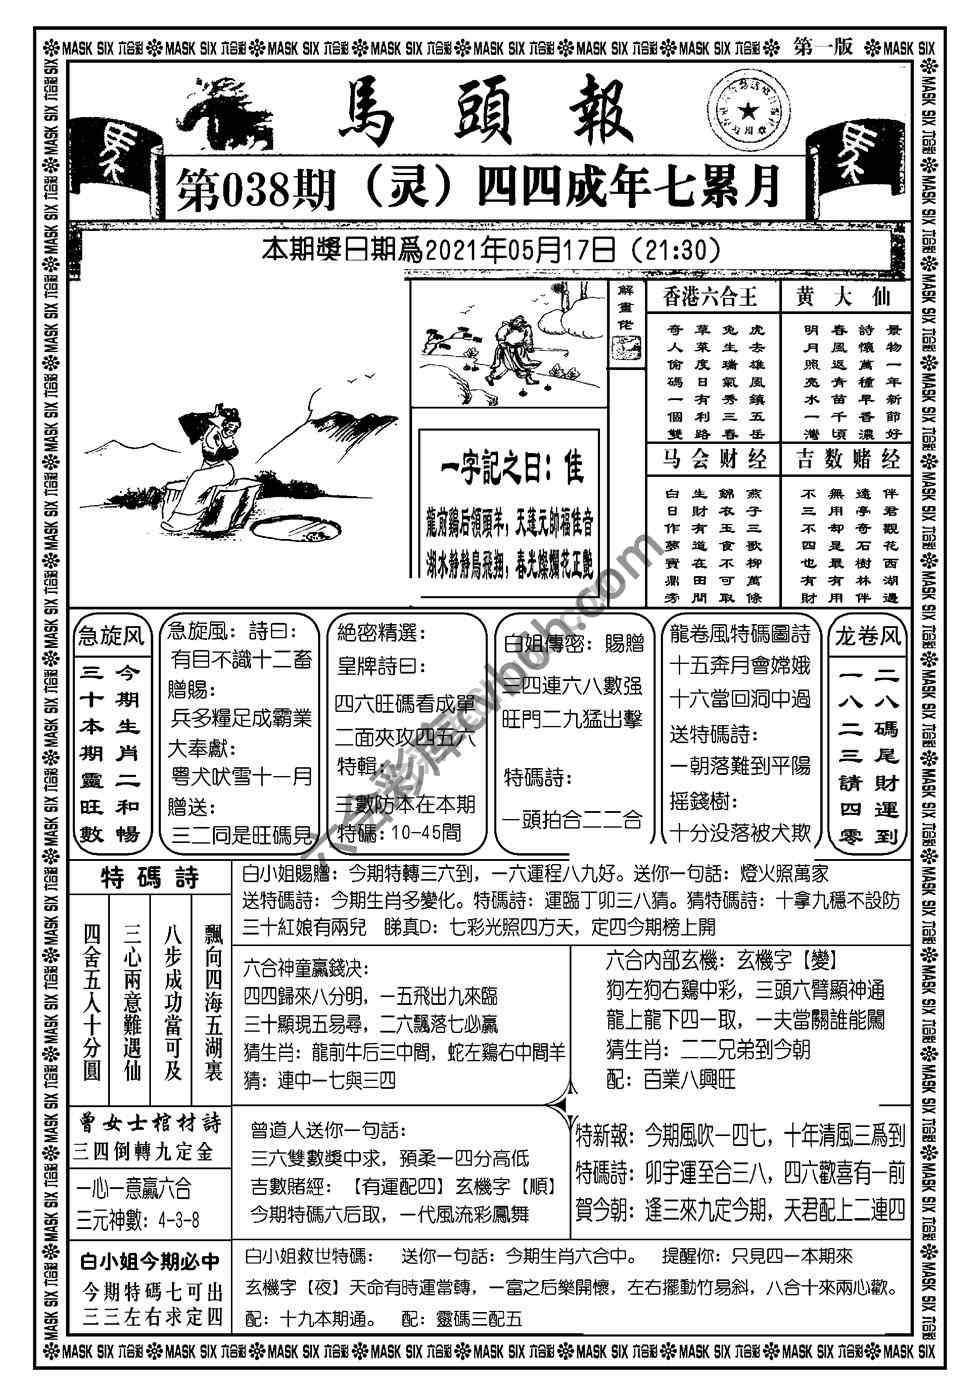 MASK SIX 六合彩 MASK SIX 六合彩 MASK SIX 六合彩 MASK SIX 六合彩 MASK SIX 六合彩 MASK SIX 六合彩 MASK SIX 六合彩 第一版 MASK SIX
馬頭報
第038期（灵）四四成年七累月
本期獎日期爲2021年05月17日（21:30）
解畫佬
一字記之曰：佳
龍前鷄后領頭羊，天蓬元帥福佳音
湖水静静鳥飛翔，春光燦爛花正艷
香港六合王
虎去雄風鎮五岳
兔生瑞氣秀三春
草菜度日有利路
奇人偷碼一個雙
黄大仙
景物一年新節好
詩懷萬種早香濃
春風返青苗千頃
明月照亮水一灣
马会财经
燕子三歌柳萬條
錦衣玉食不可取
生財有道在田間
白日作夢賣鼎旁
吉数赌经
伴君觀花西湖邊
遠亭奇石樹林伴
無用却是最有用
不三不四也有財
急旋风
今期生肖二和暢
三十本期靈旺數
急旋風：詩曰：
有目不識十二畜
贈賜：
兵多糧足成霸業
大奉獻：
粤犬吠雪十一月
贈送：
三二同是旺碼見
絶密精選：
皇牌詩曰：
四六旺碼看成單
二面夾攻四五六
特輯：
三數防本在本期
特碼：10-45間
白姐傳密：賜贈
三四連六八數强
旺門二九猛出擊
特碼詩：
一頭拍合二二合
龍卷風特碼圖詩
十五奔月會嫦娥
十六當回洞中過
送特碼詩：
一朝落難到平陽
摇錢樹：
十分没落被犬欺
龙卷风
二八碼尾財運到
一八二三請四零
特碼詩
飄向四海五湖裏
八步成功當可及
三心兩意難遇仙
四舍五入十分圓
白小姐賜贈：今期特轉三六到，一六運程八九好。送你一句話：燈火照萬家
送特碼詩：今期生肖多變化。特碼詩：運臨丁卯三八猜。猜特碼詩：十拿九穩不設防
三十紅娘有兩兒　睇真D：七彩光照四方天，定四今期榜上開
六合神童贏錢决：
四四歸來八分明，一五飛出九來臨
三十顯現五易尋，二六飄落七必贏
猜生肖：龍前牛后三中間，蛇左鷄右中間羊
猜：連中一七與三四
六合内部玄機：玄機字【變】
狗左狗右鷄中彩，三頭六臂顯神通
龍上龍下四一取，一夫當關誰能闖
猜生肖：二二兄弟到今朝
配：百業八興旺
曾女士棺材詩
三四倒轉九定金
一心一意贏六合
三元神數：4-3-8
曾道人送你一句話：
三六雙數獎中求，預柔一四分高低
吉數賭經：【有運配四】玄機字【順】
今期特碼六后取，一代風流彩鳳舞
特新報：今期風吹一四七，十年清風三爲到
特碼詩：卯宇運至合三八，四六歡喜有一前
賀今朝：逢三來九定今期，天君配上二連四
白小姐今期必中
今期特碼七可出
三三左右求定四
白小姐救世特碼：　送你一句話：今期生肖六合中。　提醒你：只見四一本期來
玄機字【夜】天命有時運當轉，一富之后樂開懷，左右擺動竹易斜，八合十來兩心歡。
配：十九本期通。　配：靈碼三配五
六合彩库cvboh.com
MASK SIX 六合彩 MASK SIX 六合彩 MASK SIX 六合彩 MASK SIX 六合彩 MASK SIX 六合彩 MASK SIX 六合彩 MASK SIX 六合彩 MASK SIX 六合彩 MASK SIX